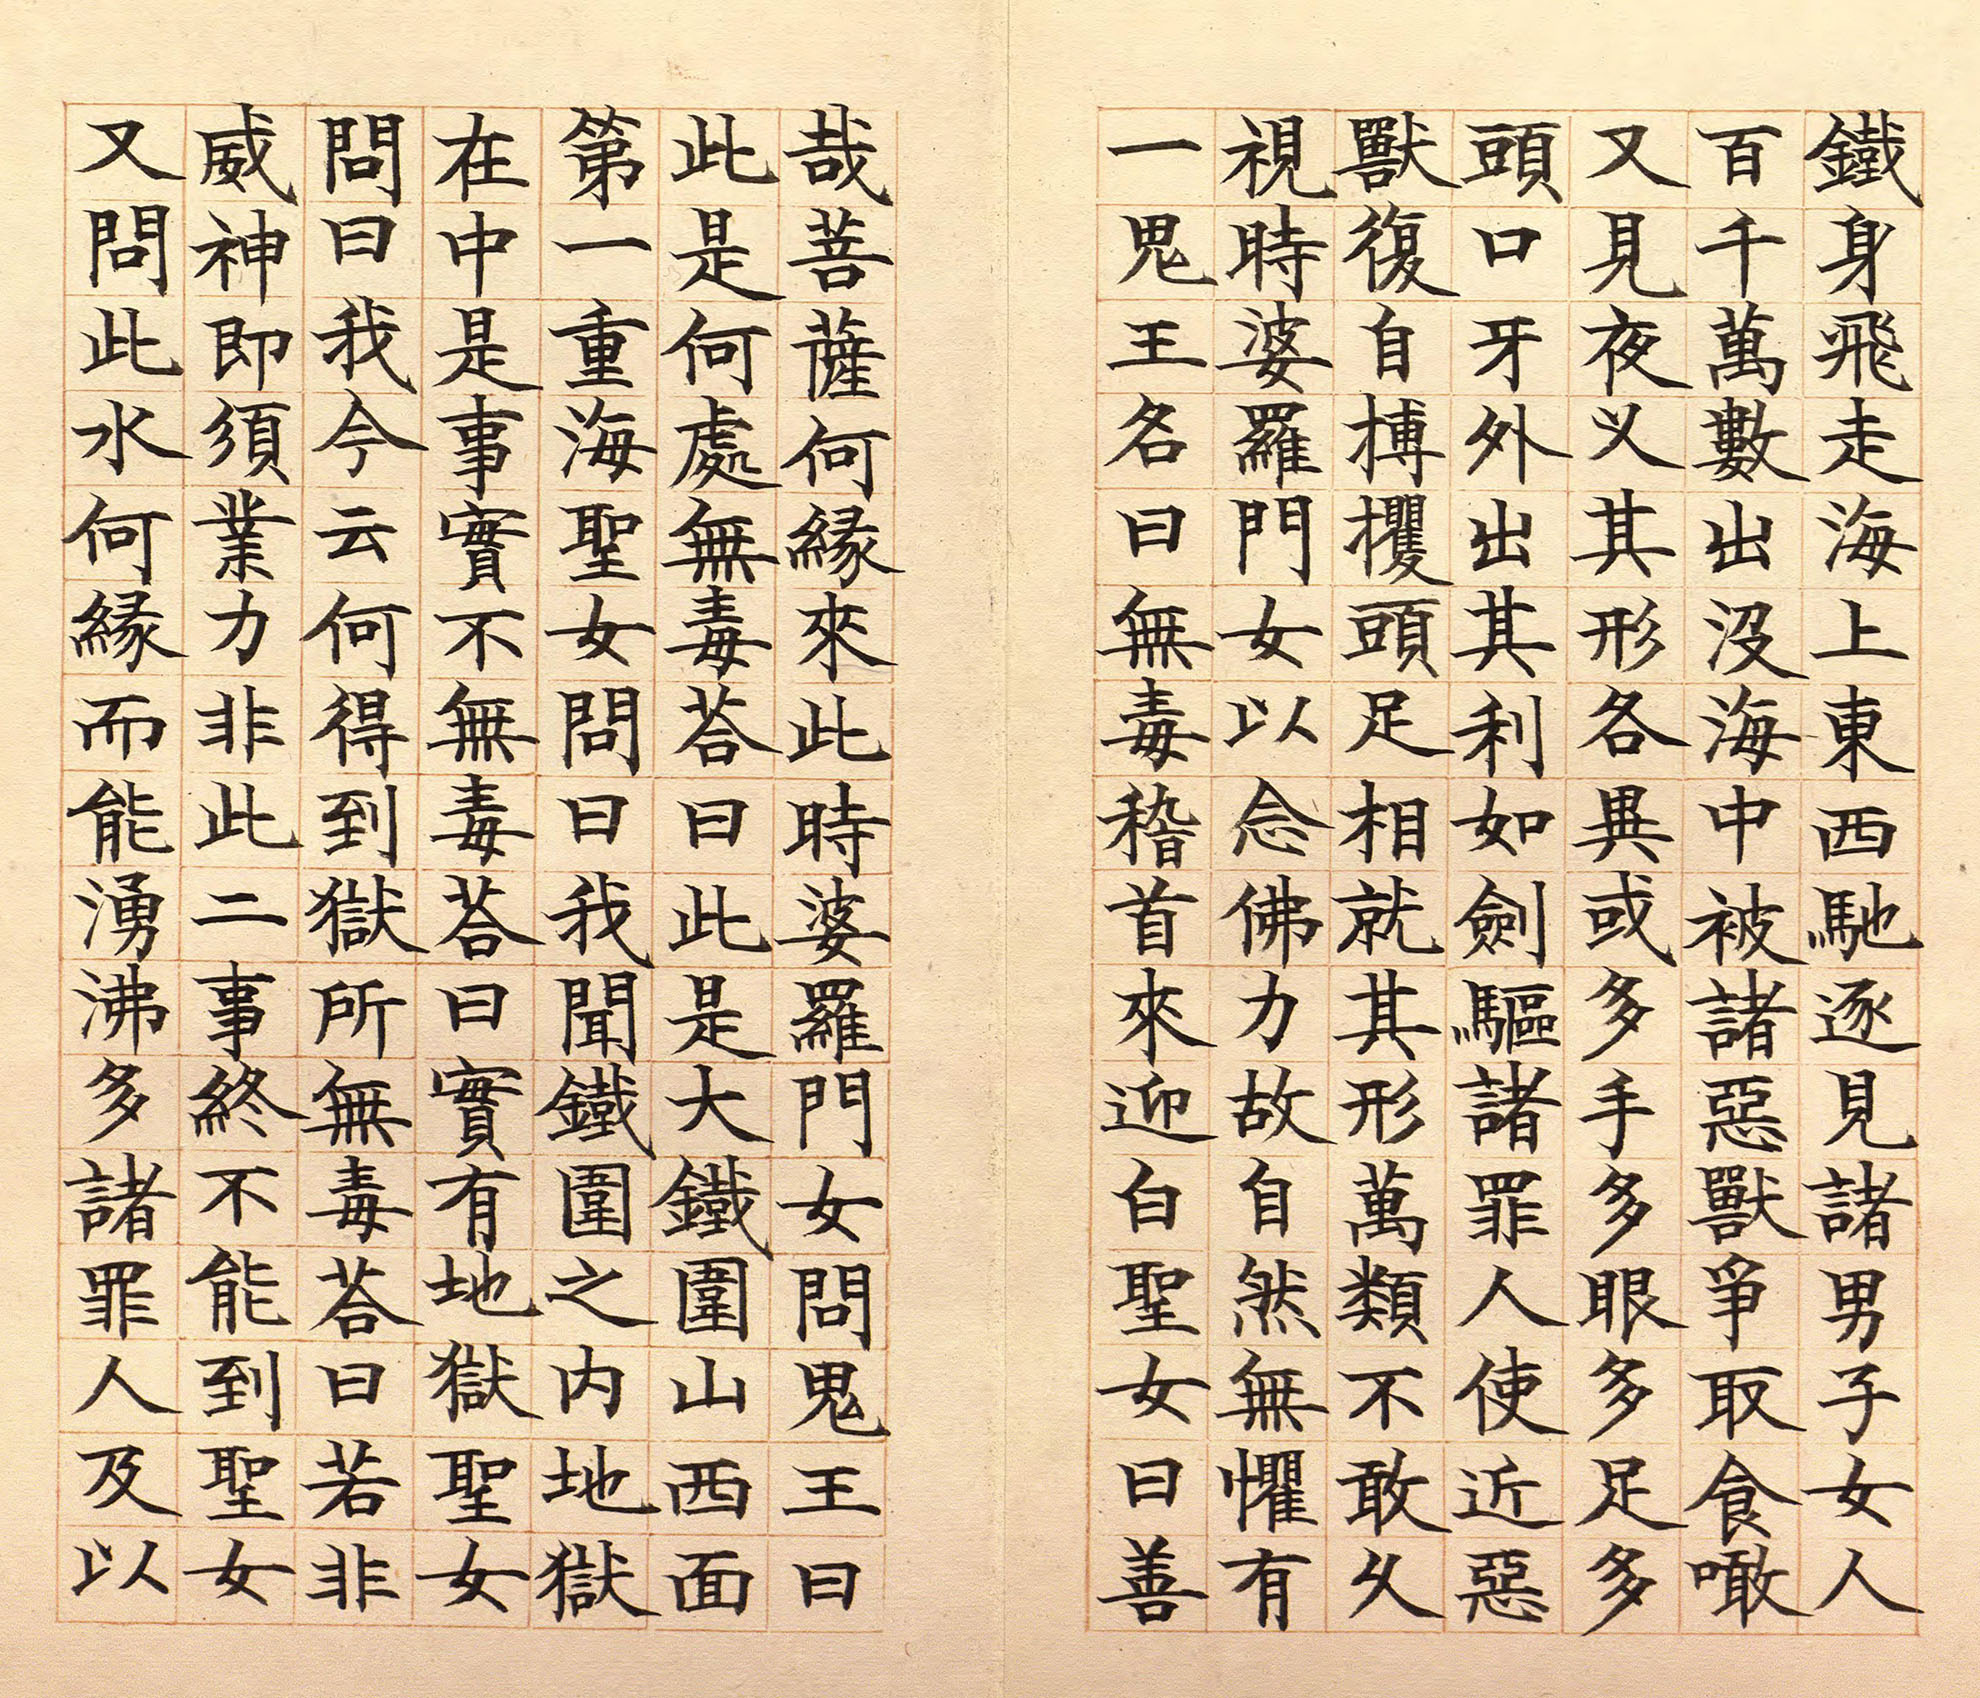 鐵身飛走海上東西馳逐見諸男子女人
百千萬數出沒海中被諸惡獸爭取食噉
又見夜义其形各異或多手多眼多足多
頭口牙外出其利如劍驅諸罪人使近惡
獸復自搏攫頭足相就其形萬類不敢久
視時婆羅門女以念佛力故自然無懼有
一鬼王名曰無毒稽首來迎白聖女曰善
哉菩薩何緣來此時婆羅門女問鬼王曰
此是何處無毒荅曰此是大鐵圍山西面
第一重海聖女問曰我聞鐵圍之內地獄
在中是事實不無毒荅曰實有地獄聖女
問曰我今云何得到獄所無毒荅曰若非
威神即須業力非此二事終不能到聖女
又問此水何緣而能湧沸多諸罪人及以